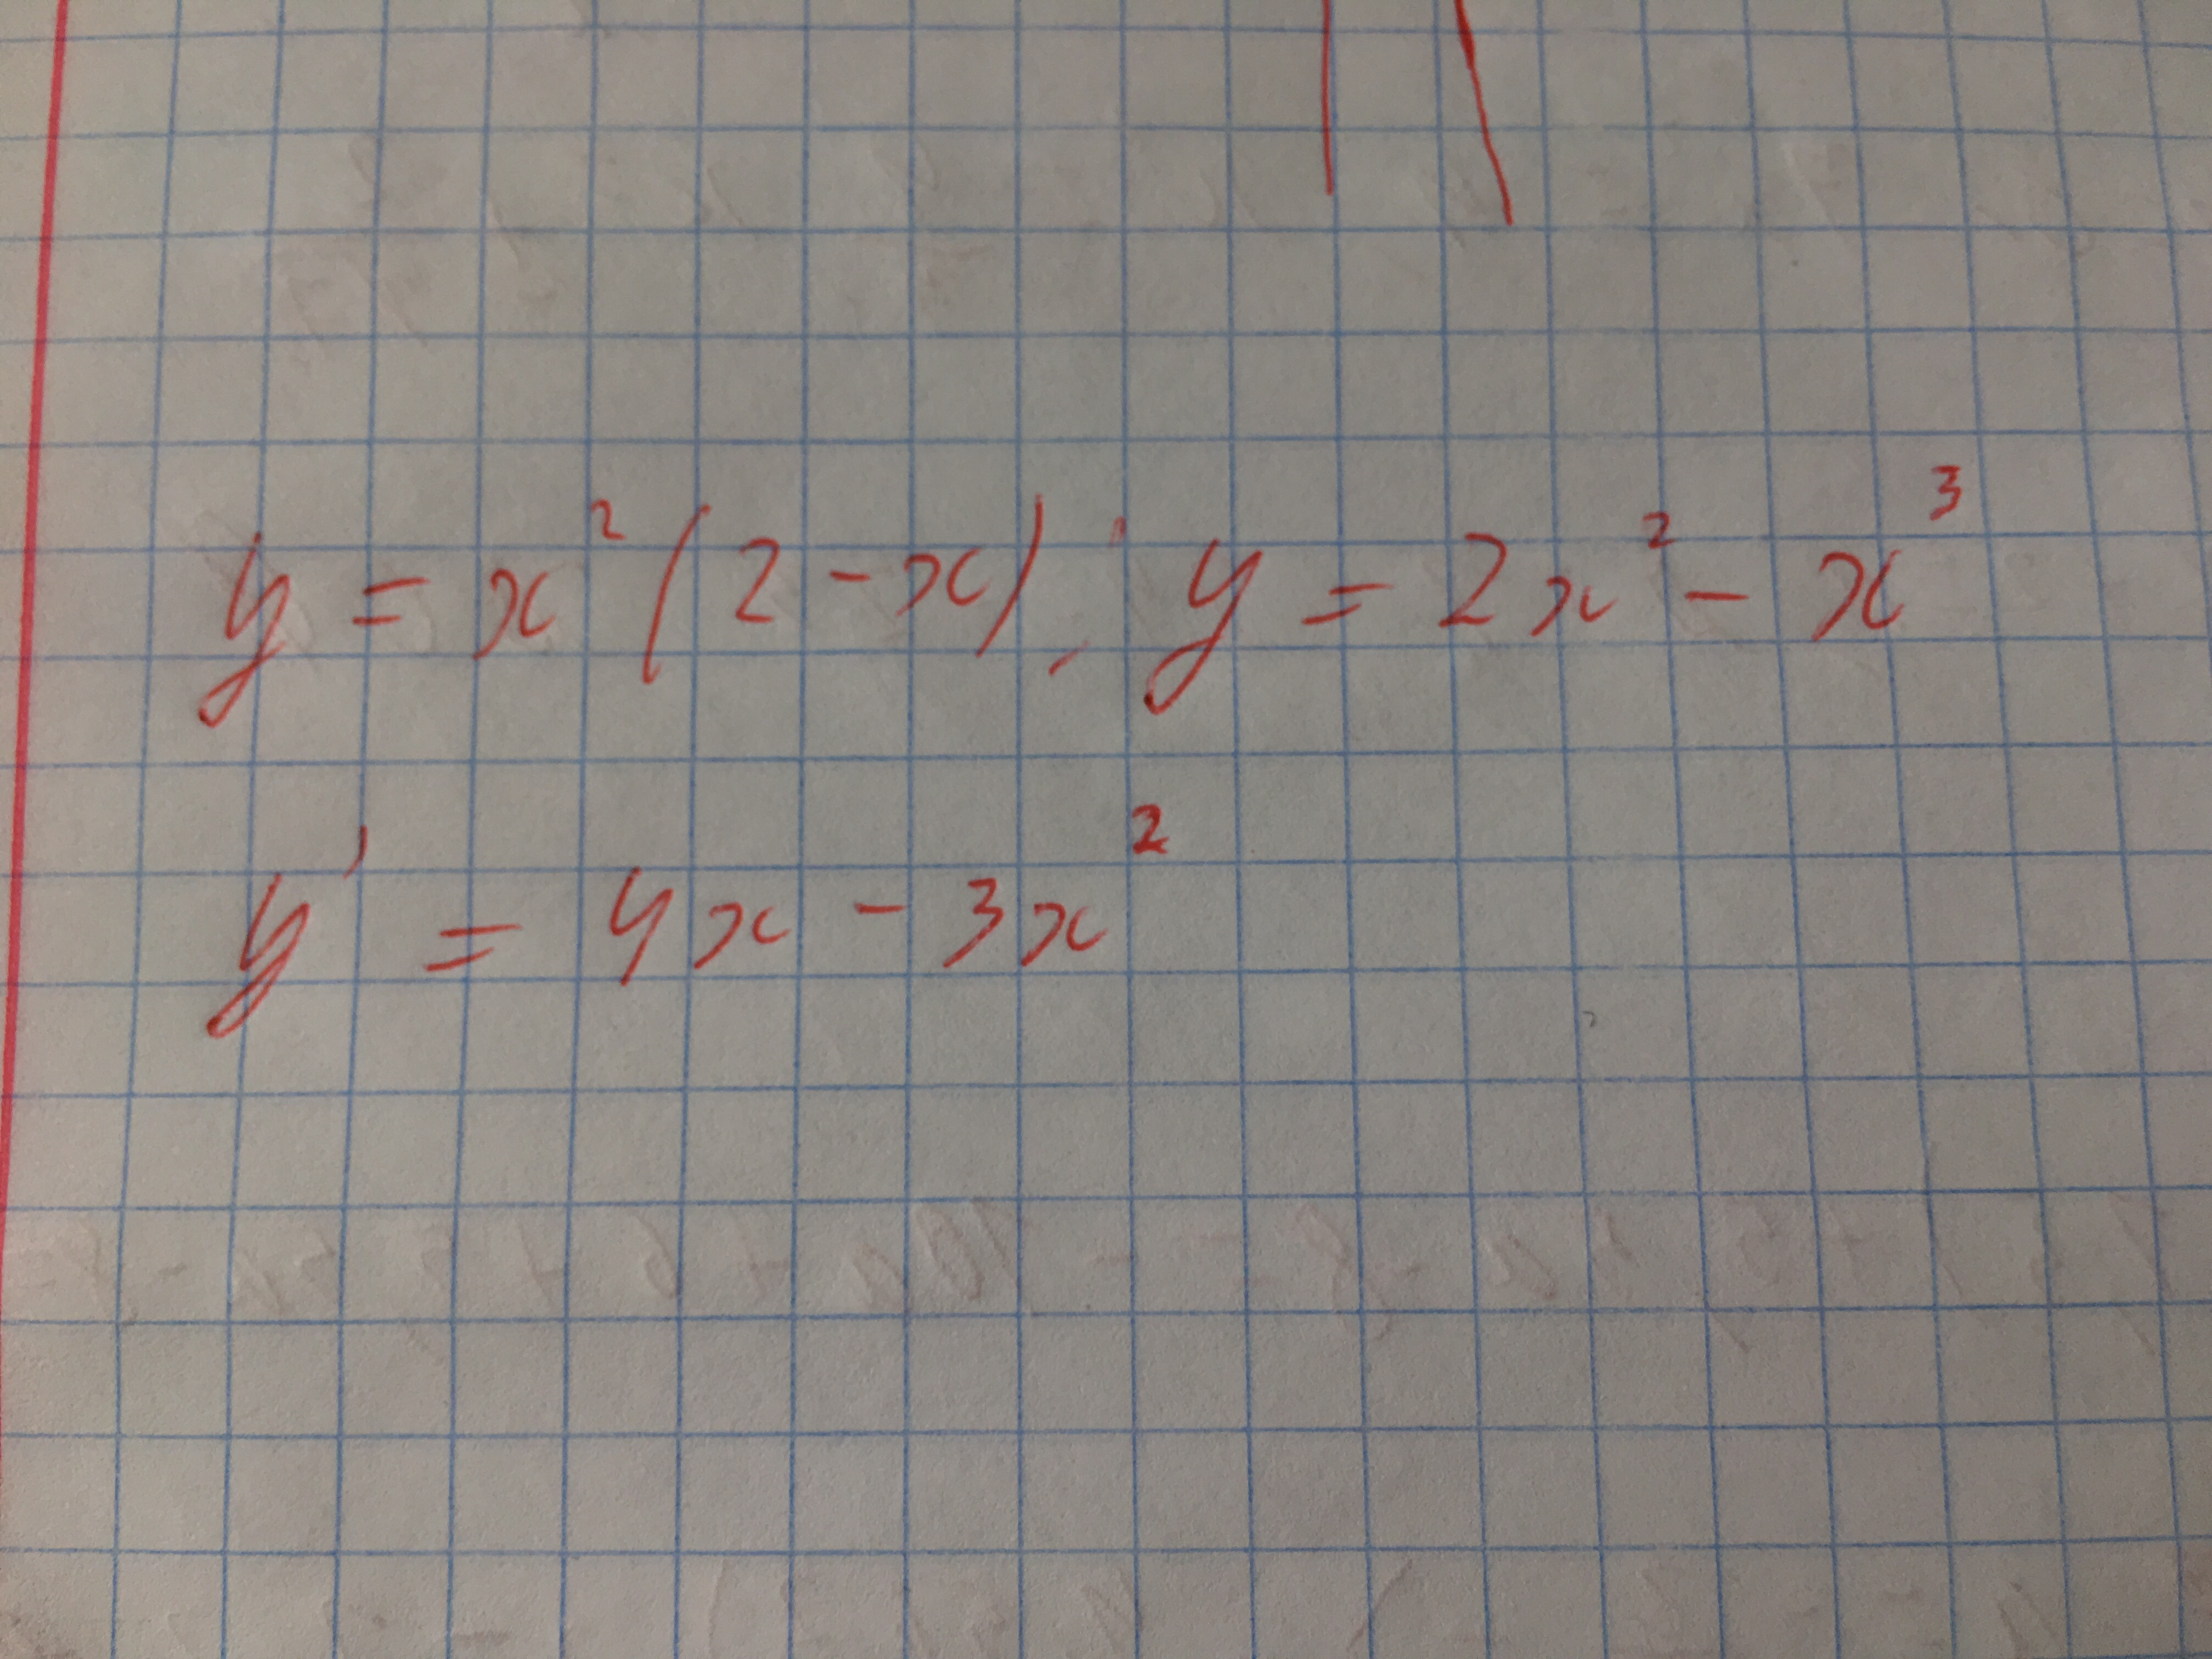 y = x²(2-x); y = 2x² - x³
y' = 4x - 3x²